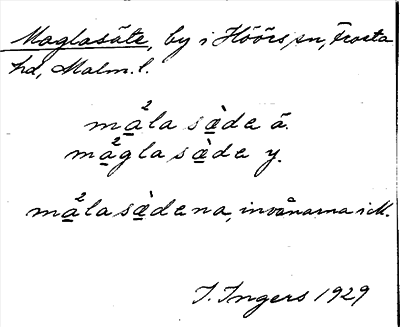 Maglasäte, by i Höörs sn, Frosta
hd, Malm. l.
ma²la sæ̀de ä.
ma²gla sæ̀de y.
ma²lasæ̀dena, invånarna i M.
I. Ingers 1929